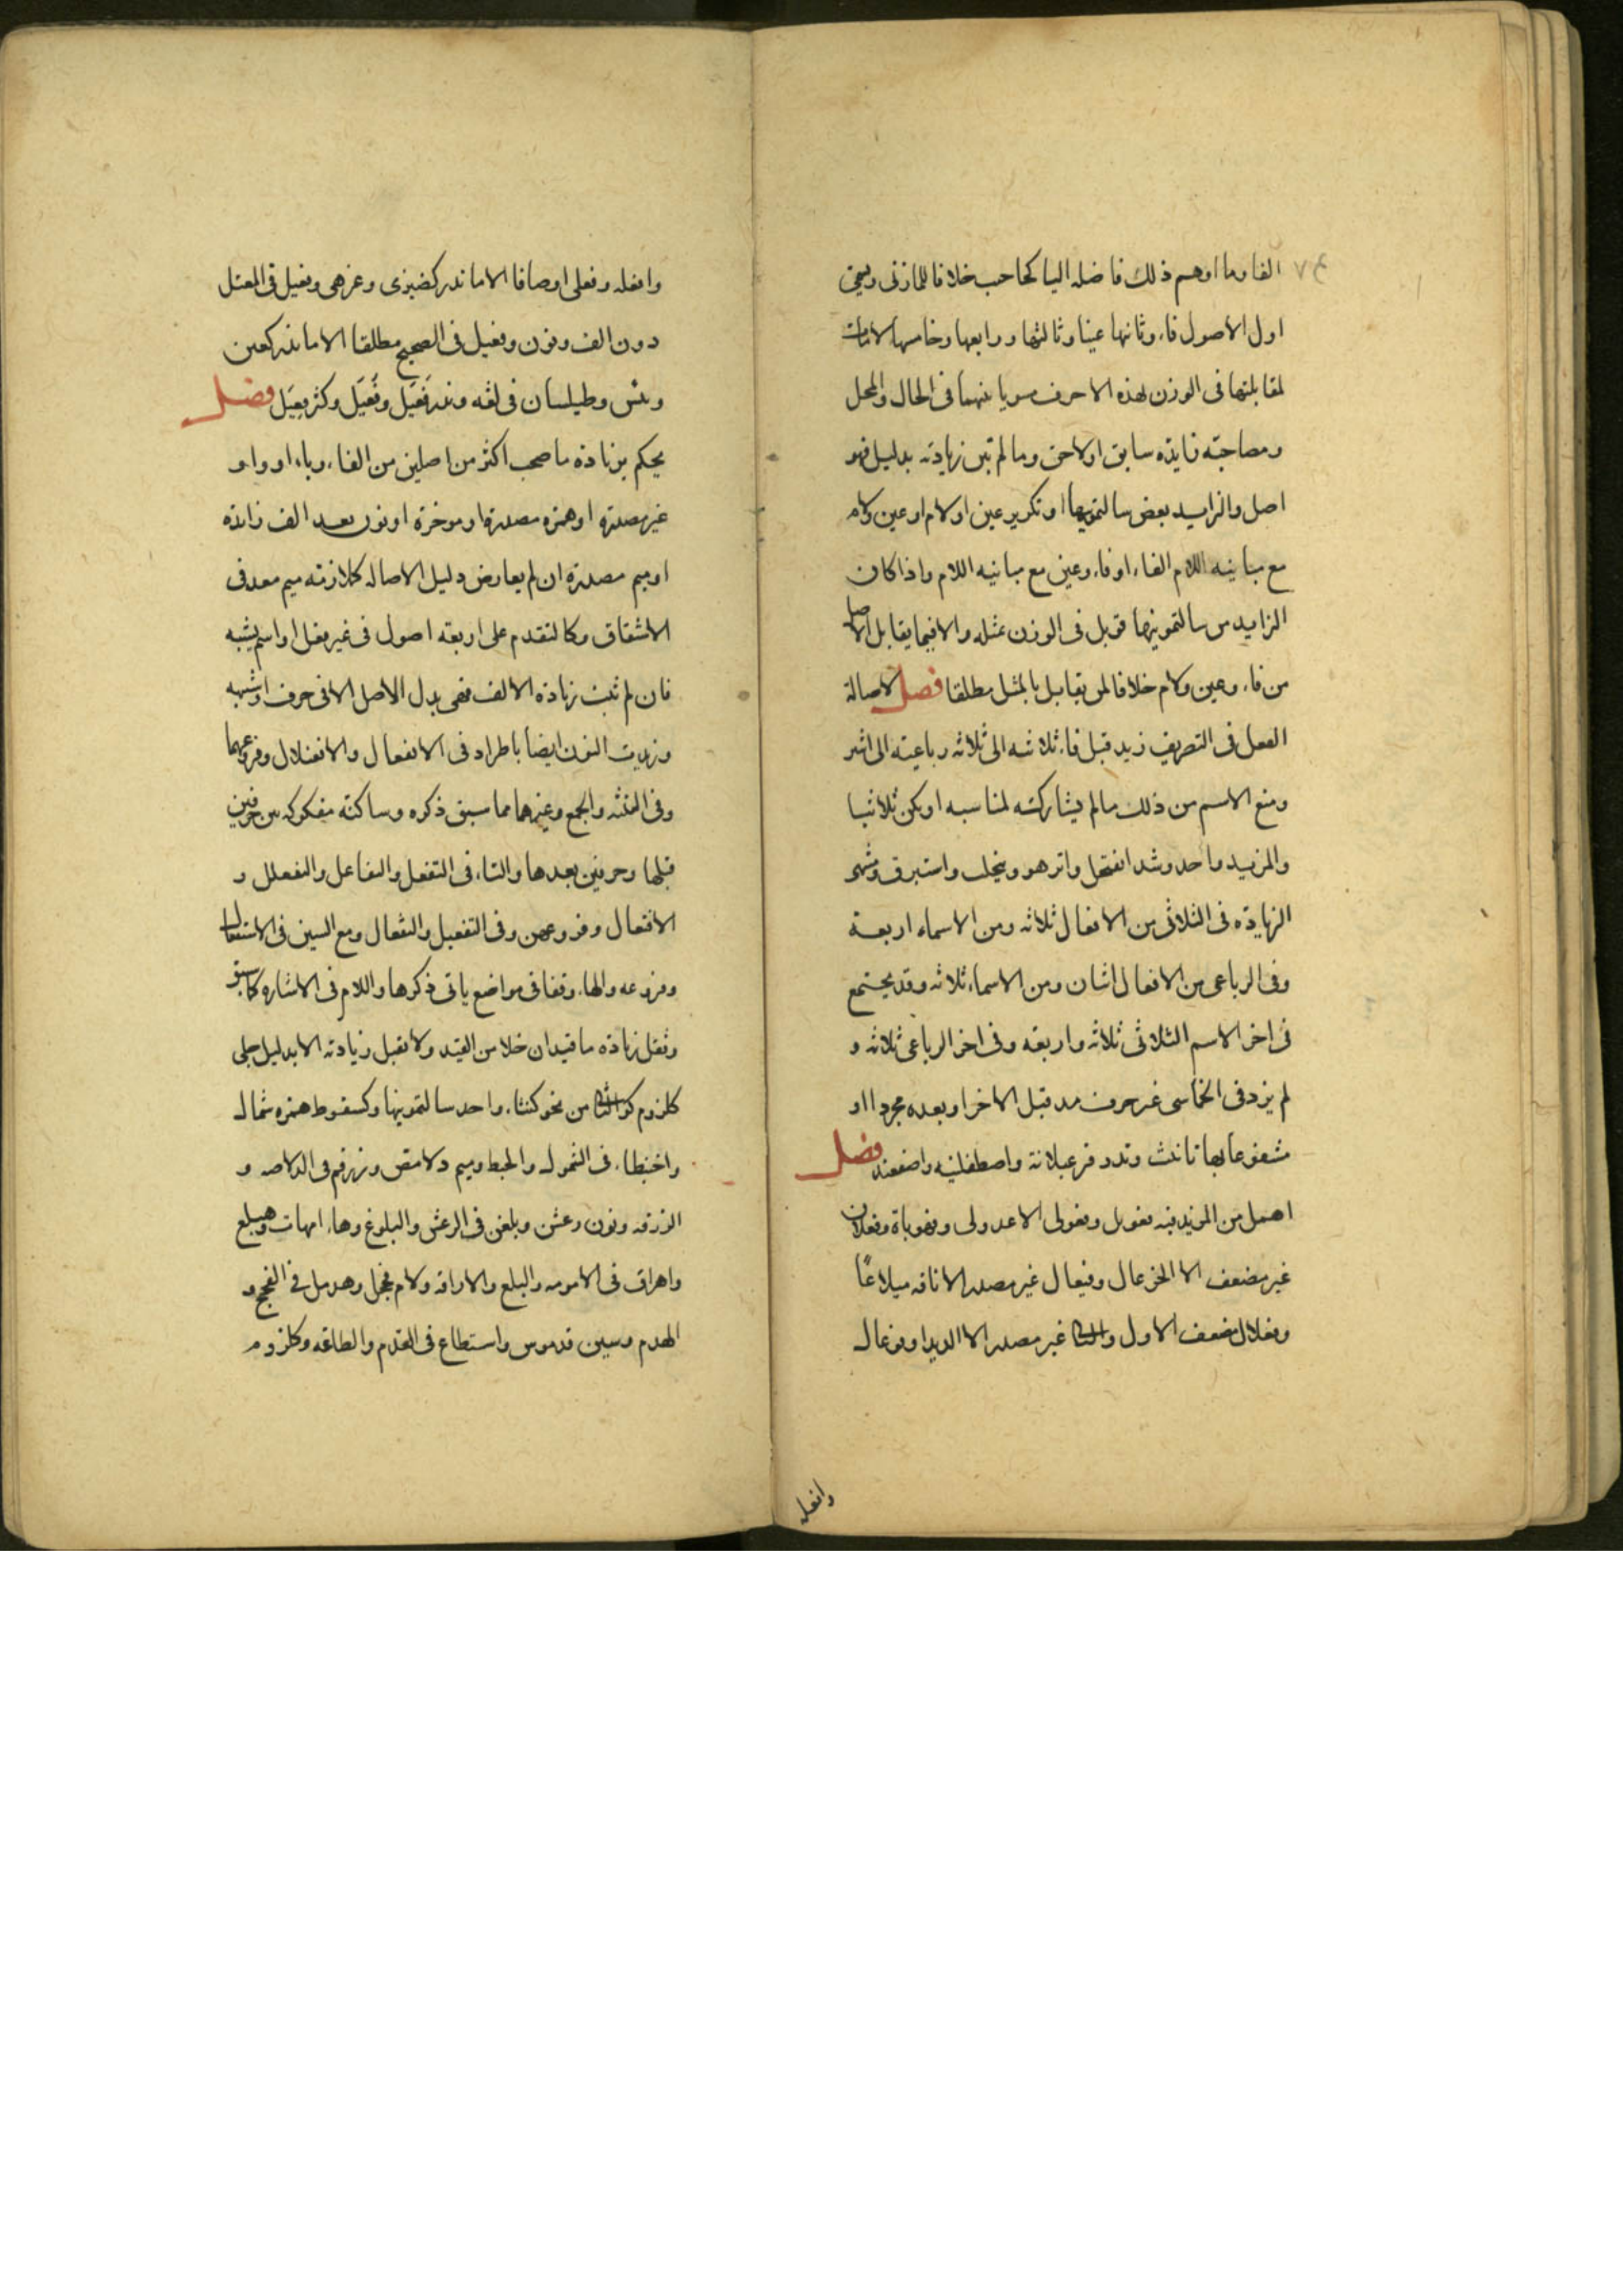 الفا وما اوهم ذلك فاصله اليا كحاحب خلافا للمازني ويسمى
اول الاصول فاء وثانها عينا وثالثها ورابعها وخامسها لامات
لمقابلتها في الوزن لهذه الاحرف مسويا بينهما في الحال والمحل
ومصاحبته زايده سابق اولاحق وما لم تبن زيادته بدليل فهو
اصل والزايد بعض سالتمونيها او تكرير عين اولام او عين ولام
مع مباينيه اللام الفاء او فاء وعين مع مباينيه اللام واذا كان
الزايد من سالتمونيها قوبل في الوزن بمثله والا فبما يقابل الاصل
من فاء وعين ولام خلافا لمن يقابل بالمثل مطلقا فصل لاصالة
الفعل في التصريف زيد قبل فاء ثلاثيه الى ثلاثه رباعيته الى اثنين
ومنع الاسم من ذلك مالم يشاركته لمناسبه اويكن ثلاثيا
والمزيد واحد وشذ انقحل وانزهو وينجلب واستبرق ومنتهى
الزيادة في الثلاثي من الافعال ثلاثه ومن الاسماء اربعة
وفي الرباعي من الافعال اثنان ومن الاسماء ثلاثه وقد يجتمع
في اخر الاسم الثلاثي ثلاثه واربعه وفي اخر الرباعي ثلاثه و
لم يزد في الخماسي غير حرف مد قبل الاخر او بعده مجردا او
مشفوعا بها تانيث وندر قرعبلانة واصطفلينه واصفعند فصل
اهمل من المزيد فيه فعويل وفعولى الا عدولى وقهوباة وفعلان
غير مضعف الا الخزعال وفيعال غير مصدر الا ناقه ميلاعا
وفعلال مضعف الاول والثاني غير مصدر الا الديدا وفوعال
وافعله
وافعله وفعلى اوصافا الا ما ندر كضيزى وعزهى وفعيل في المعتل
دون الف ونون وفعيل في الصحيح مطلقا الا ما ندر كعين
وبئس وطيلسان في لغه وندر فعيل وفعيل وكثر فعيل فصل
يحكم بزيادة ما صحب اكثر من اصلين من الفاء وياء او واو
غير مصدرة او همزه مصدرة او موخرة او نون بعد الف زائدة
او ميم مصدرة ان لم يعارض دليل الاصاله كملازمته ميم معد في
الاشتقاق وكالتقدم على اربعه اصول في غير فعل او اسم يشبه
فان لم تثبت زيادة الالف فهى بدل الاصل الا في حرف او شبهه
وزيدت النون ايضا باطراد في الانفعال والافعنلال وفروعهما
وفي التثنيه والجمع وغيرهما مما سبق ذكره وساكنه مفكوكه بين حرفين
قبلها وحرفين بعدها والتاء في التفعل والتفاعل والتفعلل و
الافتعال وفروعهن وفي التفعيل والتفعال ومع السين في الاستفعال
وفروعه والهاء وقفا في مواضع ياتي ذكرها واللام في الاشاره كما سبق
وتقل زيادة ما قيد ان خلا من القيد ولا تقبل زيادته الا بدليل جلى
كلزوم كون الثاني من نحو كنثاء واحد سالتمونيها وكسقوط همزه شمال
واحبنطاء في الشمول والحبط وميم دلامص وزرقم في الدلاصه و
الزرقه ونون رعشن وبلغن في الرعش والبلوغ وهاء امهات وهبلع
واهراق في الامومه والبلع والاراقه ولام فحجل وهدمل في الفحج و
الهدم وسين قدموس واستطاع في القدم والطاعه وكلزوم